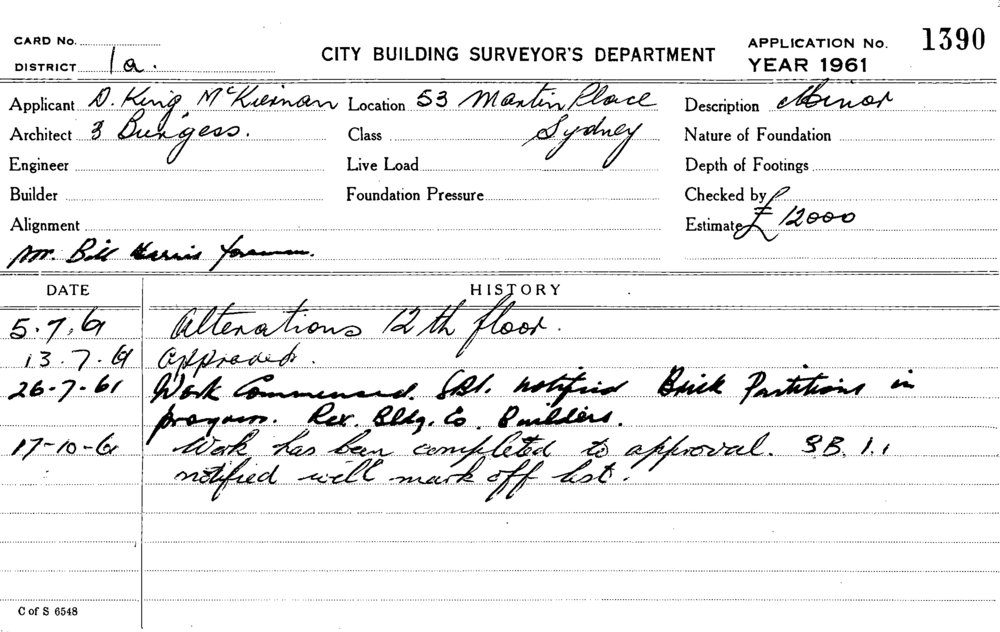 CARD No.
DISTRICT 1a.
CITY BUILDING SURVEYOR'S DEPARTMENT
APPLICATION No. 1390
YEAR 1961
Applicant D. King, McKiernan Location 53 Martin Place Description Minor
Architect 3 Burgess. Class Sydney Nature of Foundation
Engineer Live Load Depth of Footings
Builder Foundation Pressure Checked by
Alignment Estimate £12000
Mr. Bill Harris foreman.
DATE HISTORY
5.7.61 Alterations 12th floor.
13.7.61 Approved.
26-7-61 Work Commenced. notified Brick Partitions in
progress. Rex. Bldg. Co. Builders.
17-10-61 Work has been completed to approval. S.B.I.
notified will mark off list.
C of S 6548